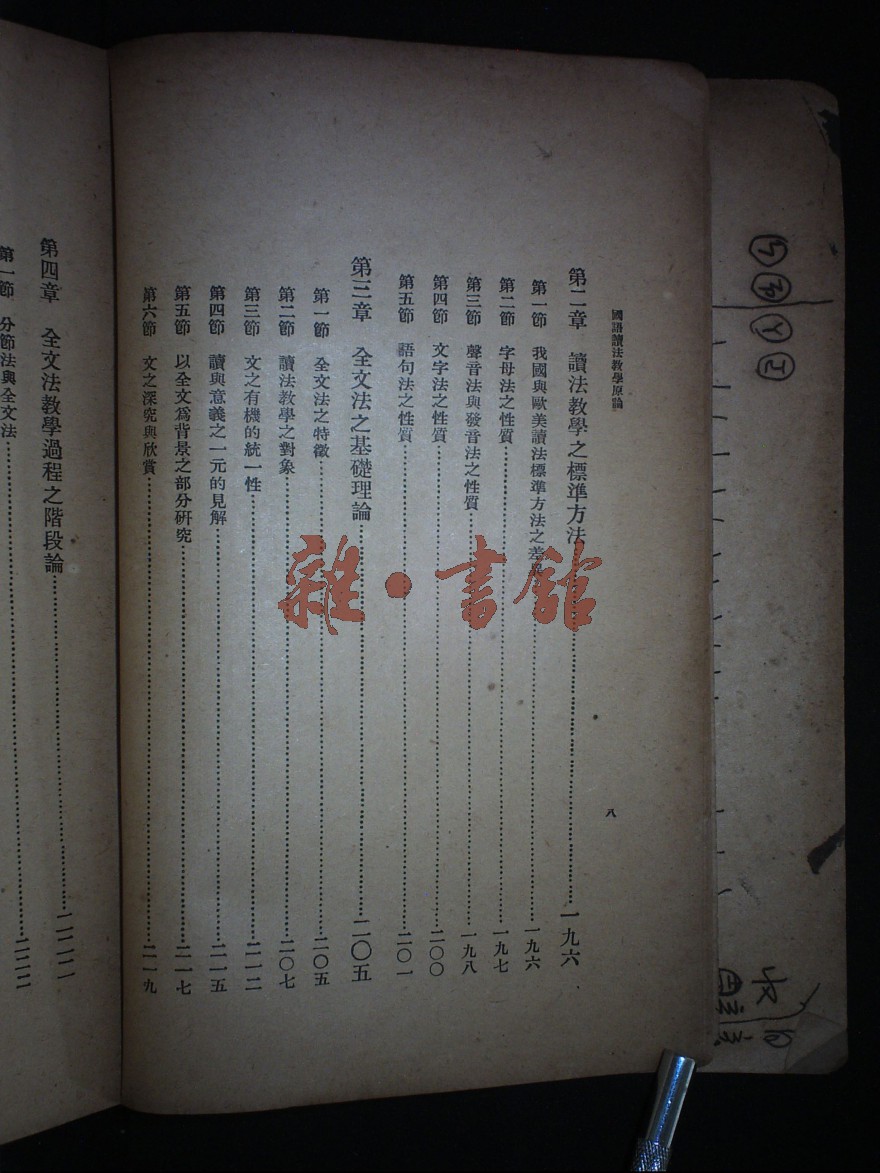 國語讀法教學原論
八
第二章 讀法教學之標準方法……一九六
第一節 我國與歐美讀法標準方法之差異……一九六
第二節 字母法之性質……一九七
第三節 聲音法與發音法之性質……一九八
第四節 文字法之性質……二〇〇
第五節 語句法之性質……二〇一
第三章 全文法之基礎理論……二〇五
第一節 全文法之特徵……二〇五
第二節 讀法教學之對象……二〇七
第三節 文之有機的統一性……二一二
第四節 讀與意義之一元的見解……二一五
第五節 以全文爲背景之部分研究……二一七
第六節 文之深究與欣賞……二一九
第四章 全文法教學過程之階段論……二二二
第一節 分節法與全文法……二二二
雜·書館